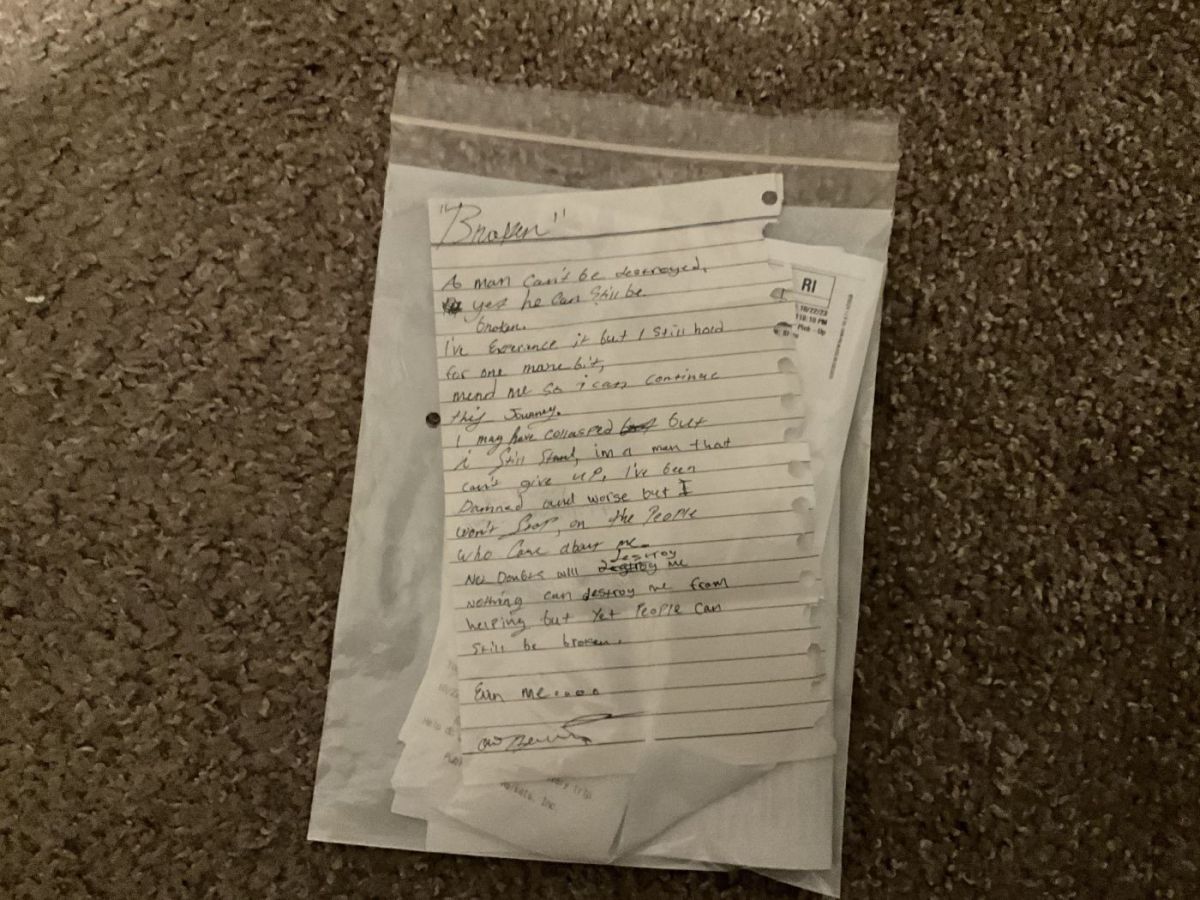 "Broken"
A man can't be destroyed,
yes he can still be
broken.
I've Experience it but I still hold
for one more bit,
mend me so i can continue
this Journey.
I may have collasped but
i still stand, im a man that
can't give up, I've been
Damned and worse but I
won't Stop, on the People
who Care about me.
No Doubts will destroy me
nothing can destroy me from
helping but yet People can
still be broken.
Evn me....
RI
10/22/23
Pick - Up
trip
Inc.